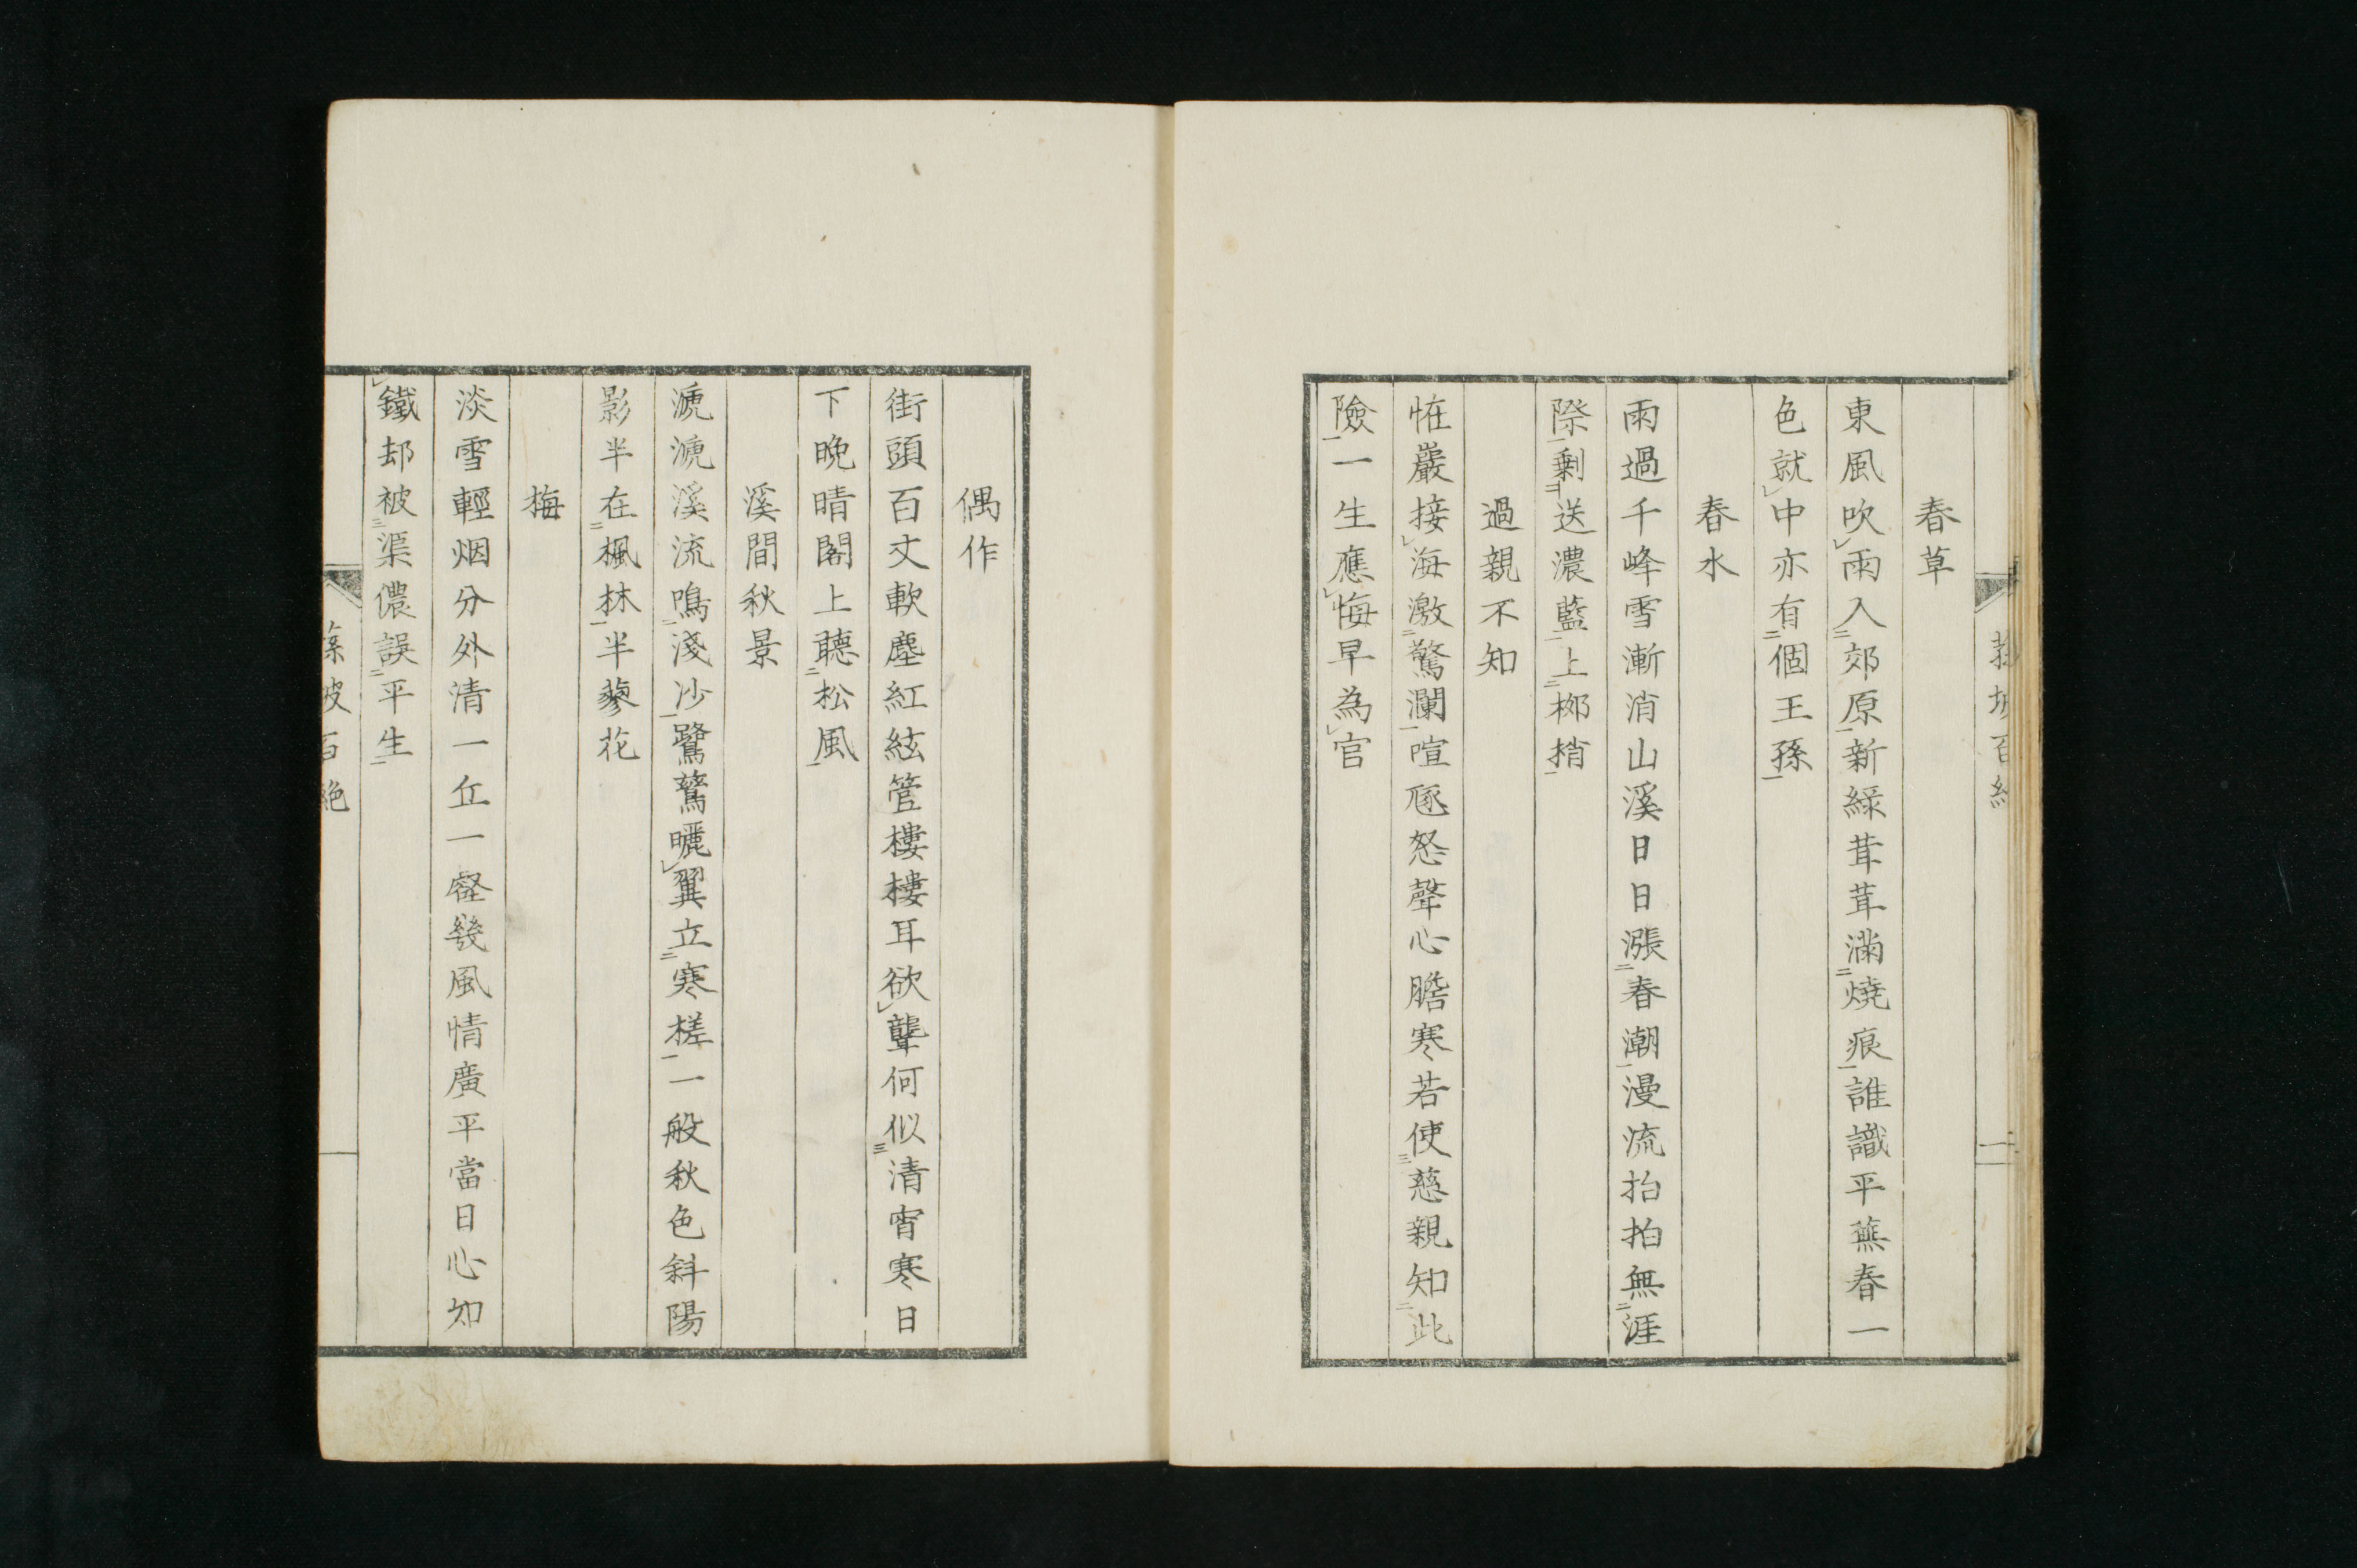 春草
東風吹雨入郊原新綠茸茸滿燒痕誰識平蕪春一
色就中亦有個王孫
春水
雨過千峰雪漸消山溪日日漲春潮漫流拍拍無涯
際剩送濃藍上柳梢
過親不知
恠巖接海激驚瀾喧豗怒聲心膽寒若使慈親知此
險一生應悔早為官
偶作
街頭百丈軟塵紅絃管樓樓耳欲聾何似清宵寒日
下晚晴閣上聽松風
溪間秋景
漉漉溪流鳴淺沙鷺鶿曬翼立寒槎一般秋色斜陽
影半在楓林半蓼花
梅
淡雪輕烟分外清一丘一壑幾風情廣平當日心如
鐵却被渠儂誤平生
坡百絶